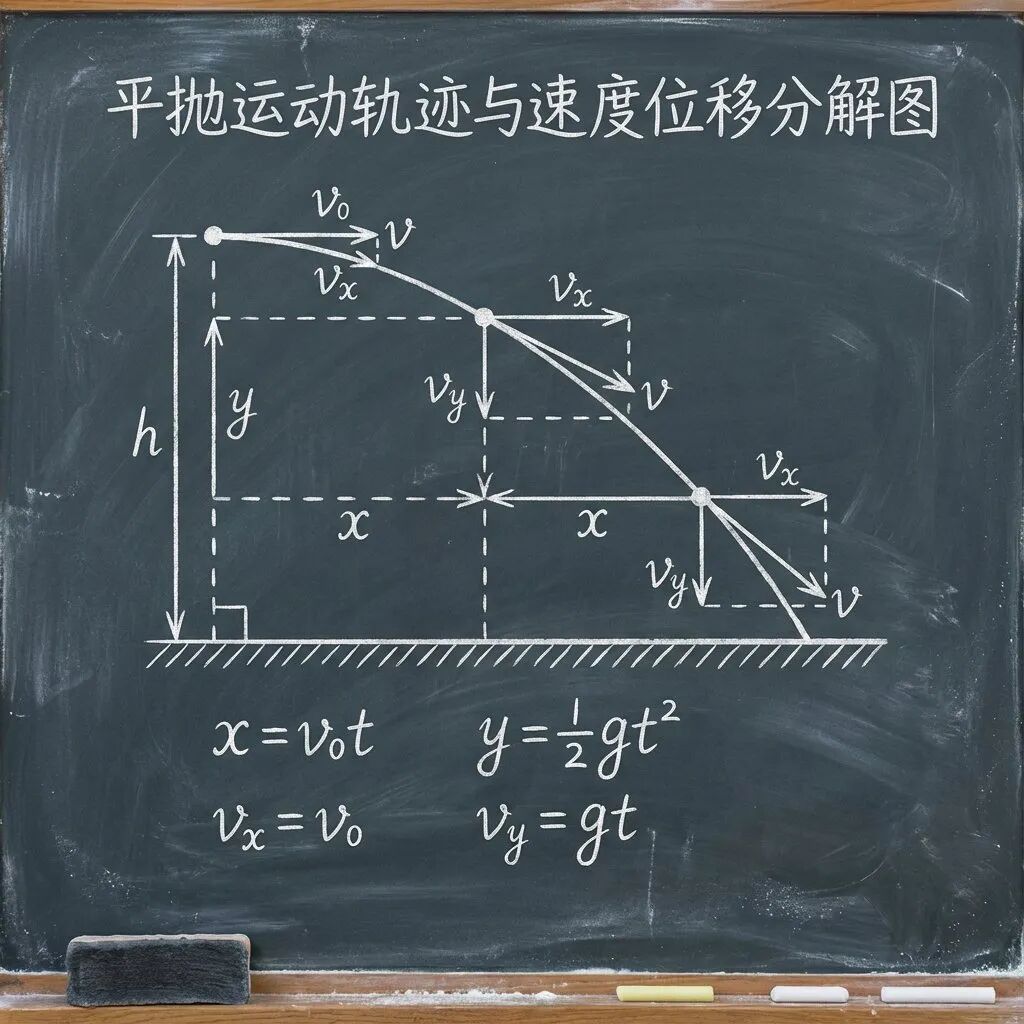 平抛运动轨迹与速度位移分解图
v₀
v
vₓ
vₓ
v_y
v
y
h
x
x
vₓ
v_y
v
x=v₀t
y=½gt²
vₓ=v₀
v_y=gt